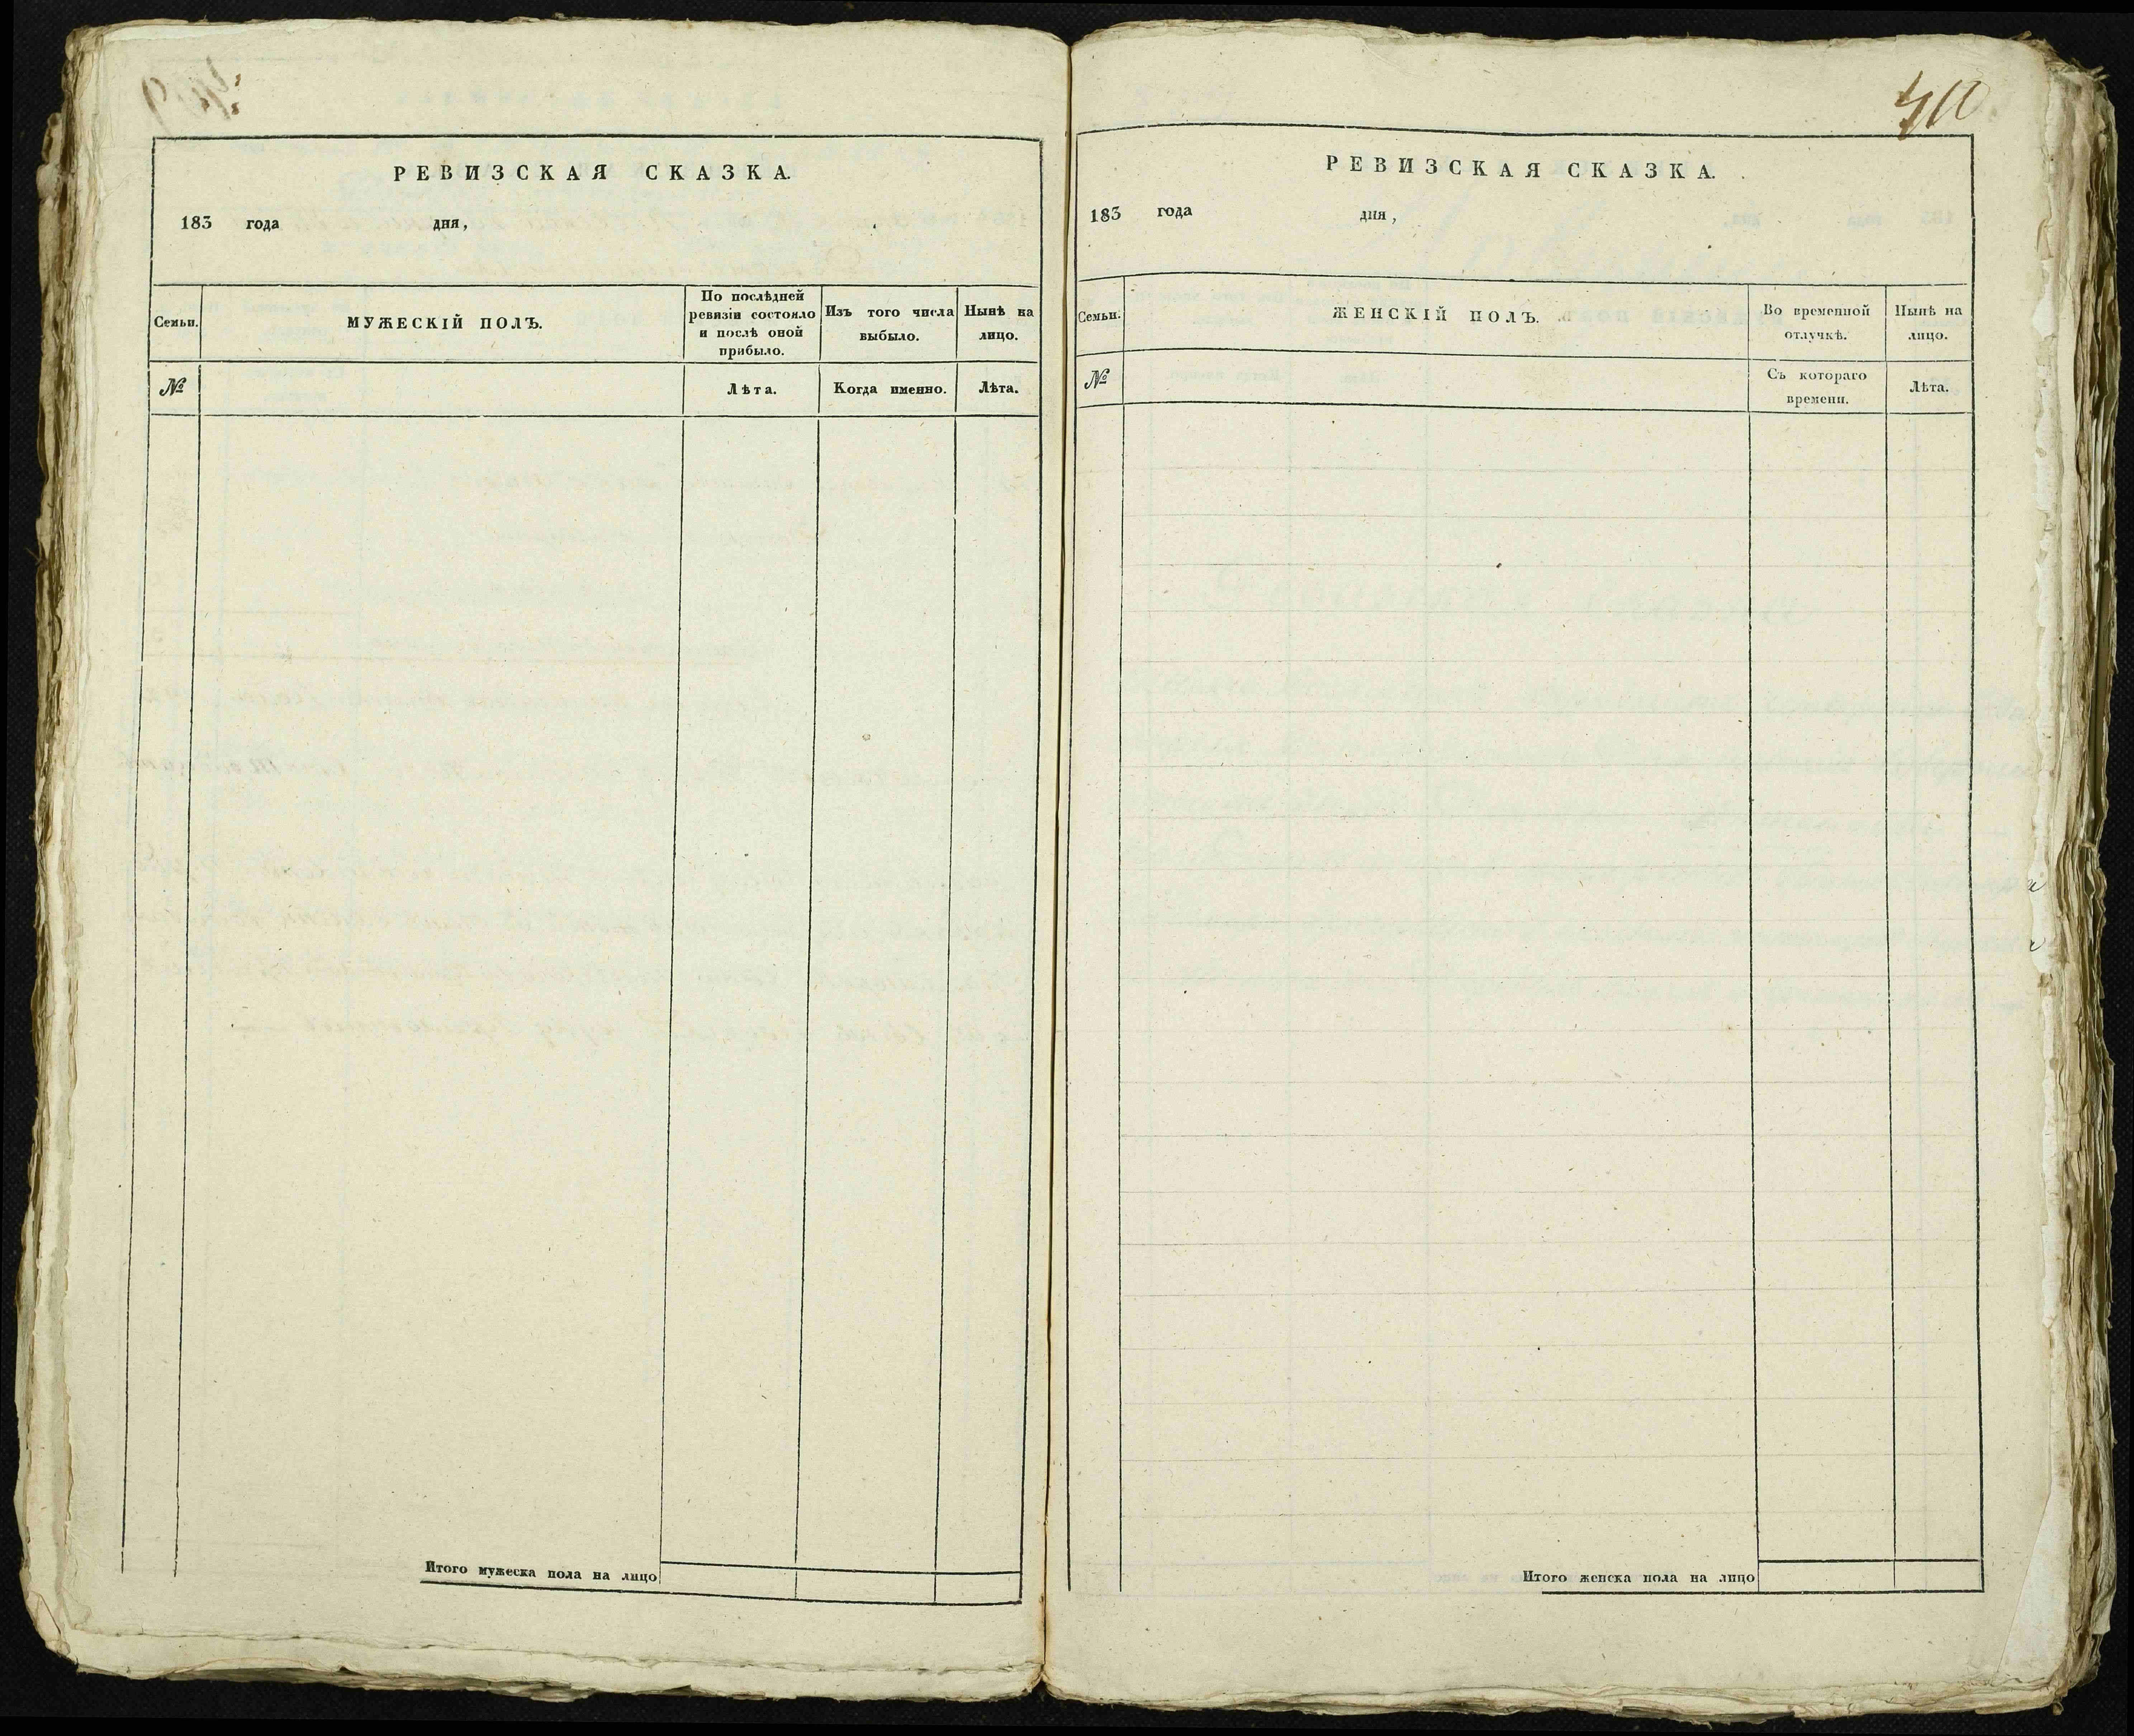 РЕВИЗСКАЯ СКАЗКА.
183 года дня,
Семьи.
МУЖЕСКІЙ ПОЛЪ.
По послѣдней
ревизіи состояло
и послѣ оной
прибыло.
Изъ того числа
выбыло.
Нынѣ на
лицо.
№
Лѣта.
Когда именно.
Лѣта.
Итого мужеска пола на лицо
410
РЕВИЗСКАЯ СКАЗКА.
183 года дня,
Семьи.
ЖЕНСКІЙ ПОЛЪ.
Во временной
отлучкѣ.
Нынѣ на
лицо.
№
Съ котораго
времени.
Лѣта.
Итого женска пола на лицо